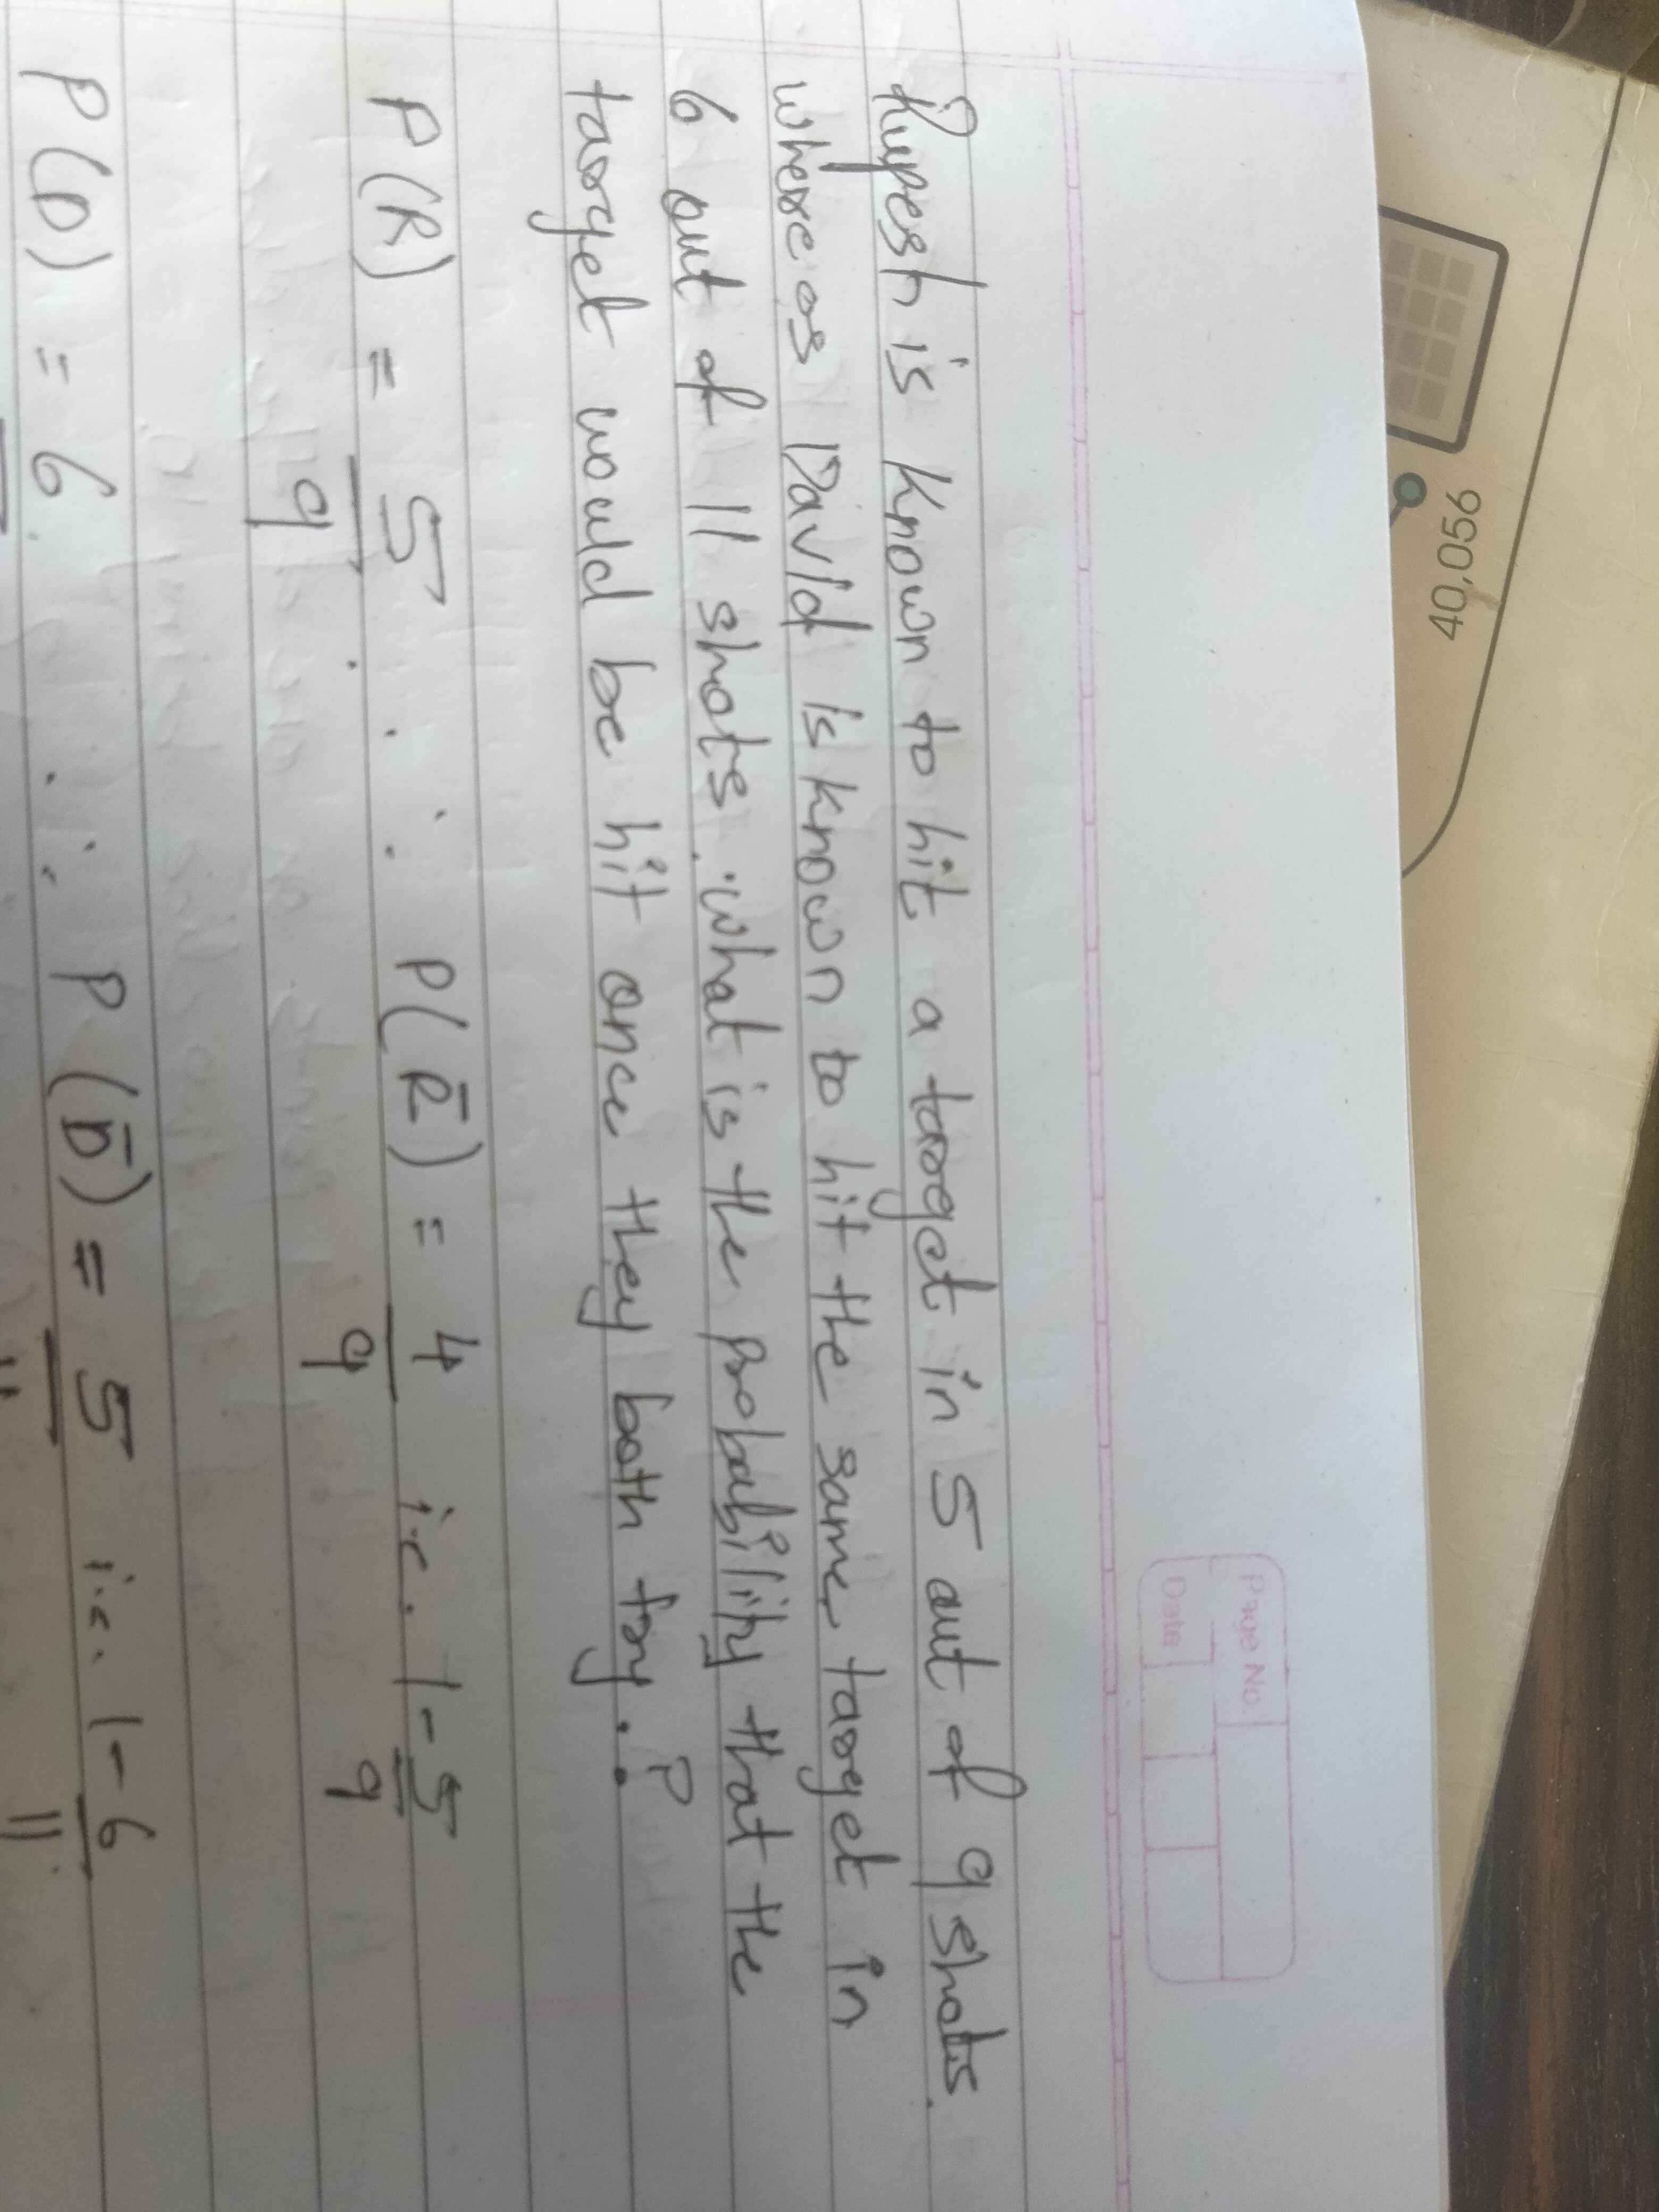 40,056
Page No.
Date
Rupesh is known to hit a target in 5 out of 9 shots
where as David is known to hit the same target in
6 out of 11 shots. what is the probability that the
target would be hit once they both try. ?
P(R) = 5/9 ∴ P(R̄) = 4/9 i.e. 1-5/9
P(D) = 6 ∴ P(D̄) = 5/11 i.e. 1-6/11